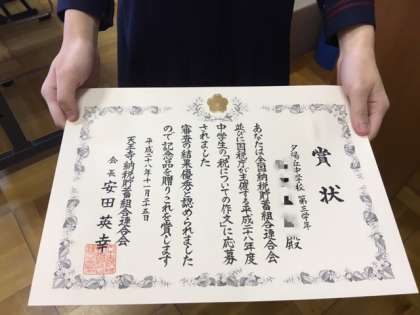 賞状
夕陽丘中学校 第三学年
殿
あなたは全国納税貯蓄組合連合会
並びに国税庁が主催する平成二十八年度
中学生の「税についての作文」に応募
されました
審査の結果優秀と認められました
ので記念品を贈りこれを賞します
平成二十八年十一月二十五日
天王寺納税貯蓄組合連合会
会長 安田英幸